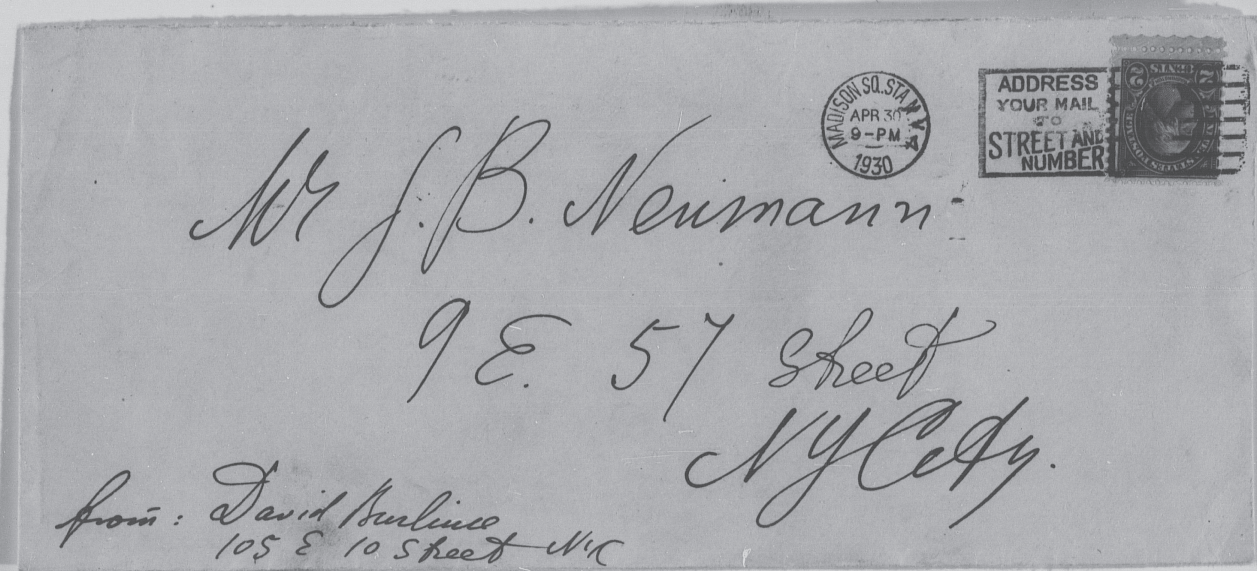 MADISON SQ. STA. N.Y.
APR 30
9-PM
1930
ADDRESS
YOUR MAIL
TO
STREET AND
NUMBER
2 CENTS 2
Mr J. B. Neumann
9 E. 57 Street
NY City.
from: David Burliuk
105 E 10 Street NYC